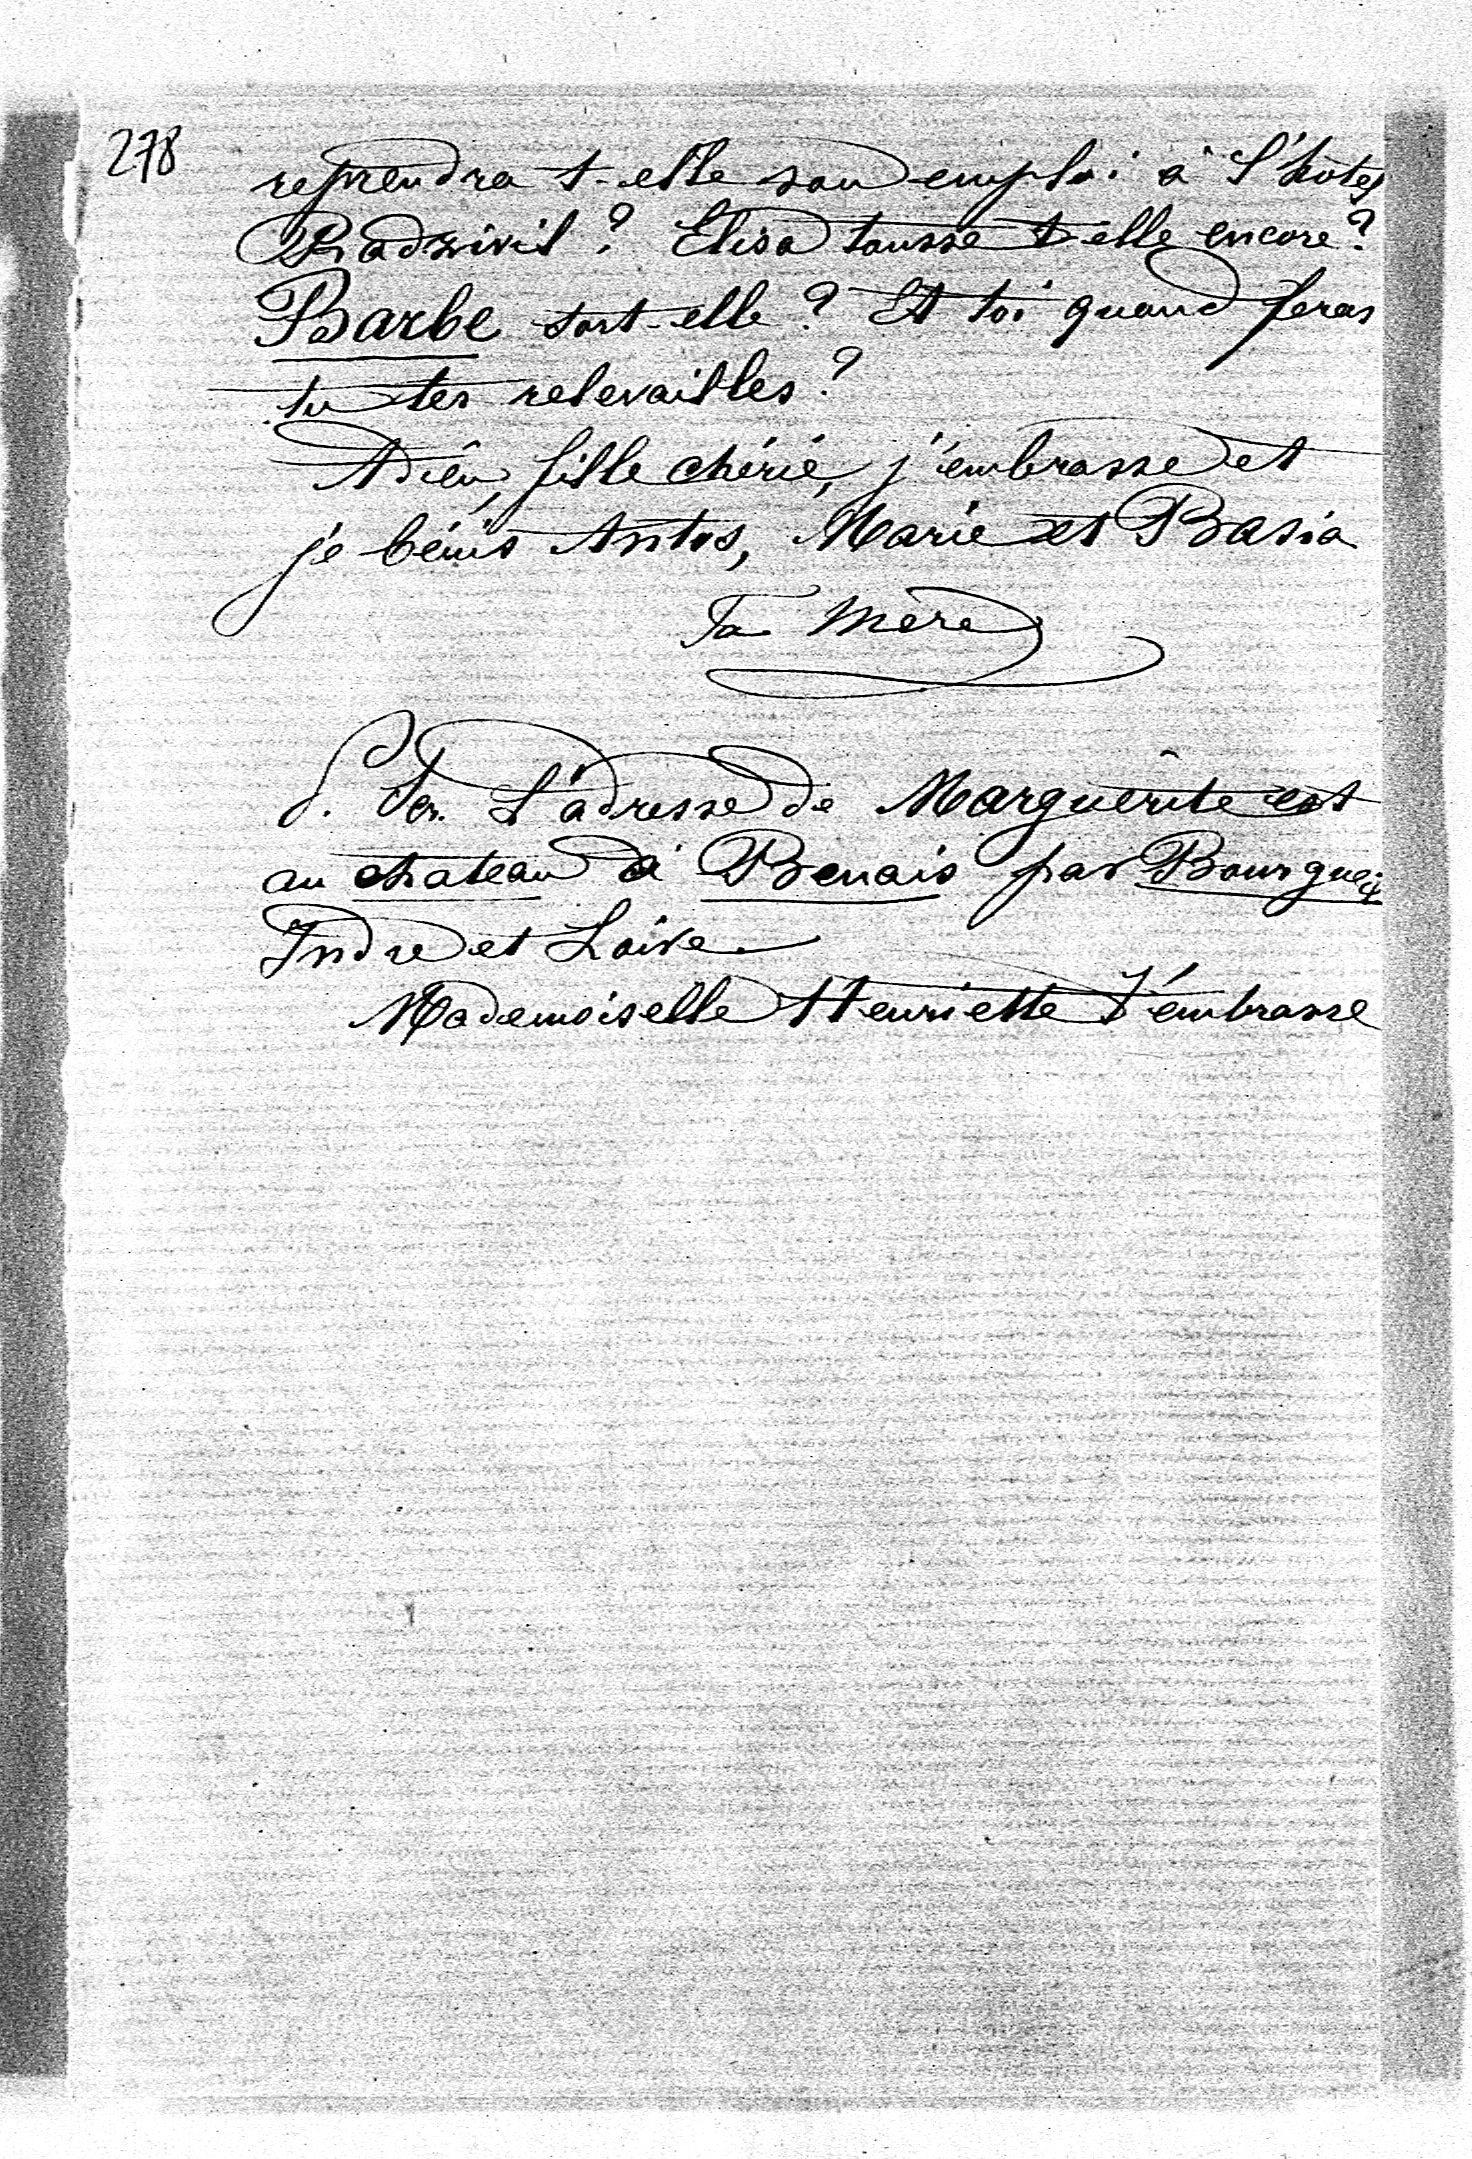 278
reprendra t-elle son emploi à l'hôtel
Radzivil ? Elisa tousse t-elle encore ?
Barbe sort-elle ? Et toi quand feras
tu tes relevailles ?
Adieu, fille chérie, j'embrasse et
je bénis Antos, Marie et Basia
Ta Mère
P. Ser. L'adresse de Marguerite est
au chateau de Benais par Bourgueil
Indre et Loire
Mademoiselle Henriette t'embrasse